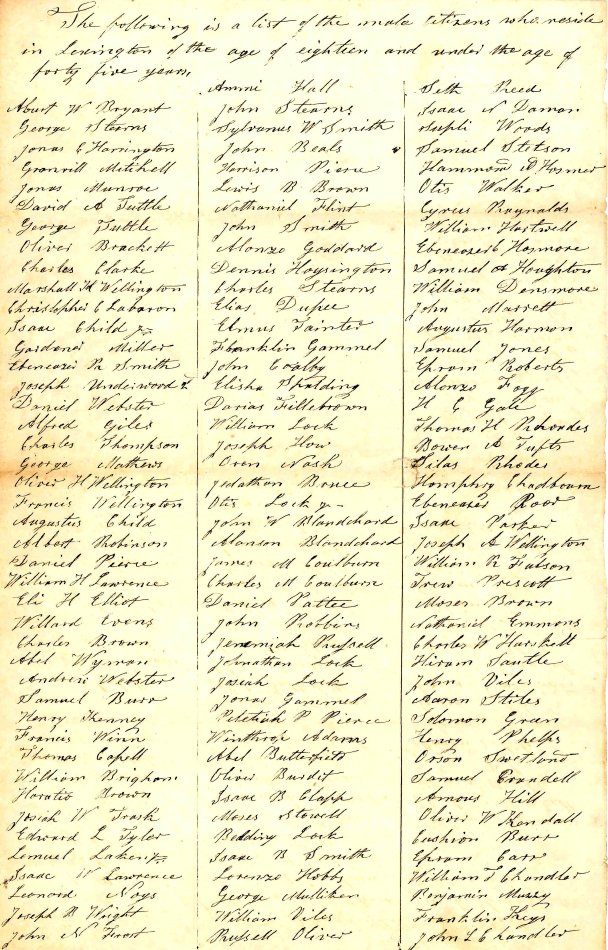 The following is a list of the male citizens who reside
in Lexington of the age of eighteen and under the age of
forty five years.
Albert W Bryant
George Stearns
Jonas C Harrington
Granvill Mitchell
Jonas Munroe
David A Tuttle
George Tuttle
Oliver Brackett
Charles Clarke
Marshall H Wellington
Christopher C Labaron
Isaac Child Jr
Gardener Miller
Ebenezer R Smith
Joseph Underwood
Daniel Webster
Alfred Giles
Charles Thompson
George Mathews
Oliver H Wellington
Francis Wellington
Augustus Child
Albert Robinson
Daniel Pierce
William H Lawrence
Eli H Elliot
Willard Evens
Charles Brown
Abel Wyman
Andrew Webster
Samuel Burr
Henry Kenney
Francis Winn
Thomas Capell
William Brigham
Horatio Brown
Josiah W Trask
Edward L Tyler
Lemuel Laken Jr
Isaac W Lawrence
Leonard Noys
Joseph B Wright
John N Frost
Ammi Hall
John Stearns
Sylvanus W Smith
John Beals
Harrison Pierce
Lewis B Brown
Nathaniel Flint
John Smith
Alonzo Goddard
Dennis Hoysington
Charles Stearns
Elias Dupee
Elmus Tainter
Franklin Gammel
John Coalby
Elisha Spalding
Darias Fillebrown
William Lock
Joseph How
Oren Nash
Jodathan Bruce
Otis Lock Jr
John W Blandchard
Alonson Blandchard
James M Coulburn
Charles M Coulburn
Daniel Pattee
John Robbins
Jeremiah Russell
Johnathan Lock
Josiah Lock
Jonas Gammel
Peletiah P Pierce
Winthrop Adams
Abel Butterfield
Oliver Burdit
Isaac B Clapp
Moses Stowell
Bedding Lock
Isaac B Smith
Lorenzo Hobbs
George Mulliken
William Viles
Russell Oliver
Seth Reed
Isaac N Damon
Woods
Samuel Stetson
Hammond A Hosmer
Otis Walker
Cyrus Raynalds
William Hartwell
Ebenezer C Hosmore
Samuel A Houghton
William Densmore
John Marrett
Augustus Harmon
Samuel Jones
Epram Roberts
Alonzo Fogg
H C Gale
Thomas H Rhoades
Bowen A Tufts
Silas Rhodes
Homphry Chadbourn
Ebeneazer Roor
Isaac Parker
Joseph A Wellington
William R Hutson
Trew Prescott
Moses Brown
Nathaniel Emmons
Charles W Harskell
Hiram Sautle
John Viles
Aaron Stiles
Solomon Green
Henry Phelps
Orson Swetland
Samuel Crandell
Amous Hill
Oliver W Kendall
Cushion Burr
Epram Carr
William T Chandler
Benjamin Muzzy
Franklin Keys
John L Chandler